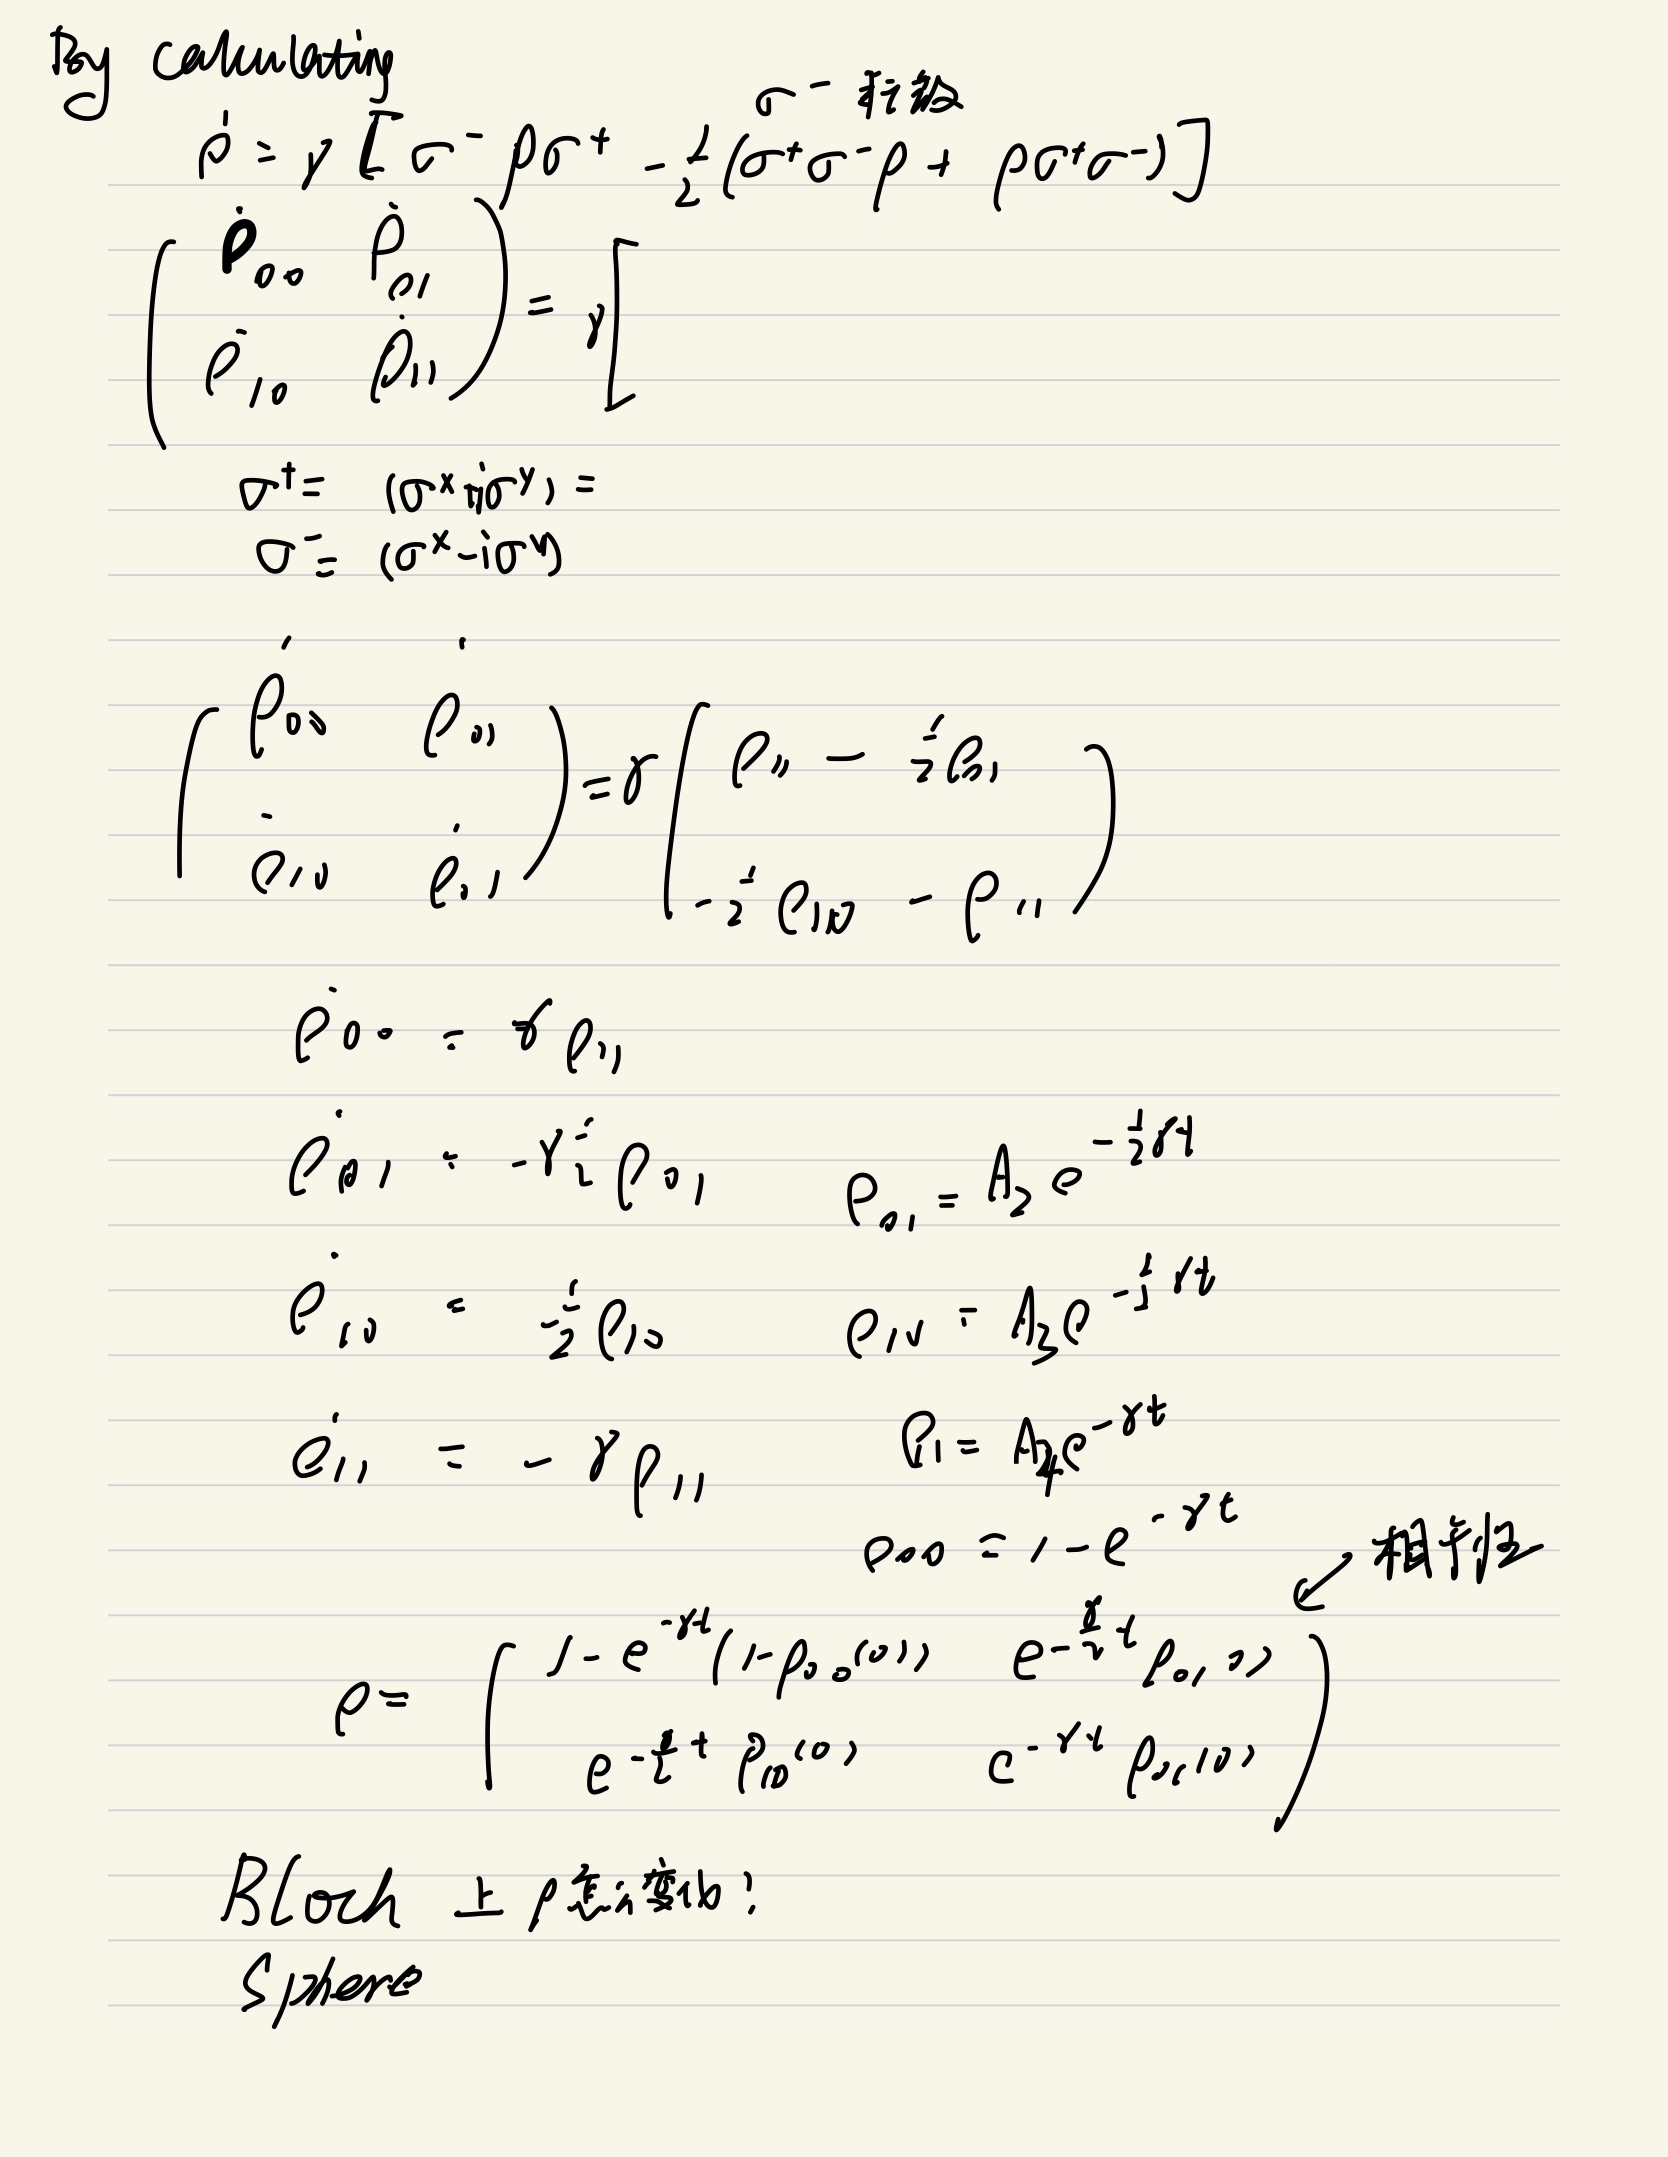 By calculating
σ⁻ 耗散
ρ̇ = γ [ σ⁻ρσ⁺ - ½(σ⁺σ⁻ρ + ρσ⁺σ⁻) ]
( ρ̇₀₀ ρ̇₀₁
ρ̇₁₀ ρ̇₁₁ ) = γ [
σ⁺ = (σˣ+iσʸ) =
σ⁻ = (σˣ-iσʸ)
( ρ̇₀₀ ρ̇₀₁ ) = γ ( ρ₁₁ - ½ρ₀₁
ρ̇₁₀ ρ̇₁₁ -½ρ₁₀ - ρ₁₁ )
ρ̇₀₀ = γρ₁₁
ρ̇₀₁ = -γ½ρ₀₁ ρ₀₁ = A₂e^{-½γt}
ρ̇₁₀ = -½ρ₁₀ ρ₁₀ = A₃e^{-½γt}
ρ̇₁₁ = -γρ₁₁ ρ₁₁ = A₄e^{-γt}
ρ₀₀ = 1-e^{-γt} ↙ 相干性
ρ = ( 1-e^{-γt}(1-ρ₀₀(0)) e^{-γ/2 t}ρ₀₁(0)
e^{-γ/2 t}ρ₁₀(0) e^{-γt}ρ₁₁(0) )
Bloch 上 ρ怎么变化?
Sphere